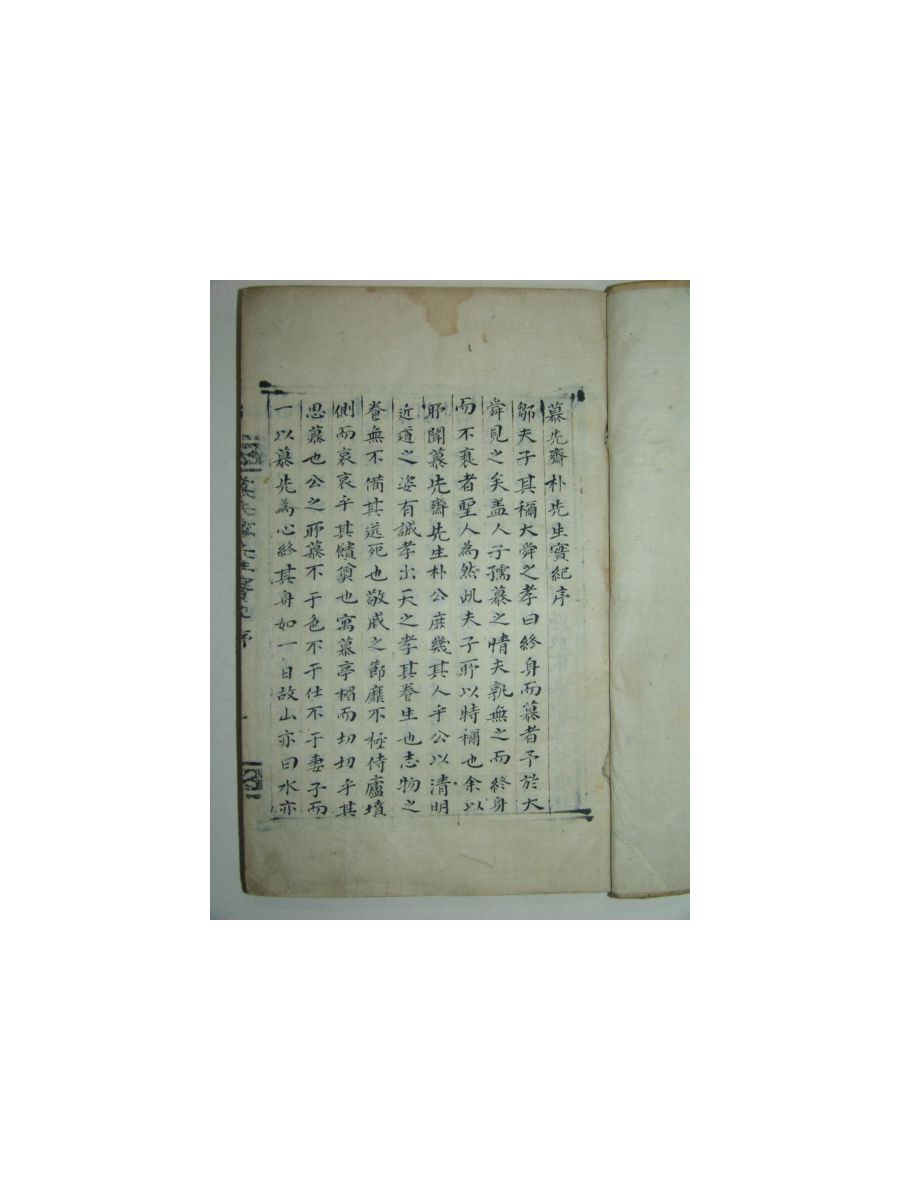 慕先齋朴先生實紀序
鄒夫子其稱大舜之孝曰終身而慕者予於大
舜見之矣盖人子孺慕之情夫孰無之而終身
而不衰者聖人為然此夫子所以特稱也余以
所聞慕先齋先生朴公庶幾其人乎公以清明
近道之姿有誠孝出天之孝其養生也志物之
養無不備其送死也敬戚之節靡不極侍廬墳
側而哀哀乎其饋奠也寓慕亭楣而切切乎其
思慕也公之所慕不于色不于仕不于妻子而
一以慕先為心終其身如一日故山亦曰水亦
慕先齋先生實紀 序 一